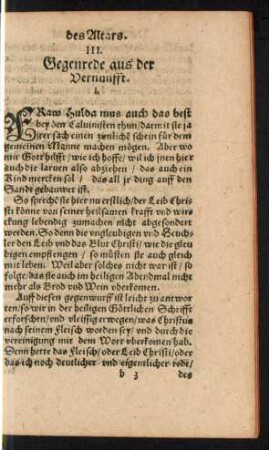 des Altars.
III.
Gegenrede aus der
Vernunfft.
I.
FRaw Hulda mus auch das best
bey den Caluinisten thun / darmit sie ja
jhrer sach einen zimlich schein für dem
gemeinen Manne machen mögen. Aber wo
mir Gott hilfft / wie ich hoffe / wil ich jnen hier
auch die laruen also abziehen / das auch ein
Kind mercken sol / das all jr ding auff den
Sandt gebawet ist.
So sprechē sie hier nu erstlich / der Leib Chri
sti könne von seiner heilsamen krafft vnd wirs
ckung lebendig zumachen nicht abgesondert
werden. So denn die vngleubigen vnd Heuch
ler den Leib vnd das Blut Christi / wie die gleu
bigen empfiengen / so müsten sie auch gleich
mit leben. Weil aber solches nicht war ist / so
folge das sie auch im heiligen Abendmal nicht
mehr als Brod vnd Wein vberkomen.
Auff diesen gegenwurff ist leicht zu antwor
ten / so wir in der heiligen Göttlichen Schrifft
erforschen / vnd vleissig erwegen / was Christus
nach seinem Fleisch worden sey / vnd durch die
vereinigung mit dem Wort vberkomen hab.
Denn hette das Fleisch / oder Leib Christi / oder
das ich noch deutlicher vnd eigentlicher rede /
b 3 des